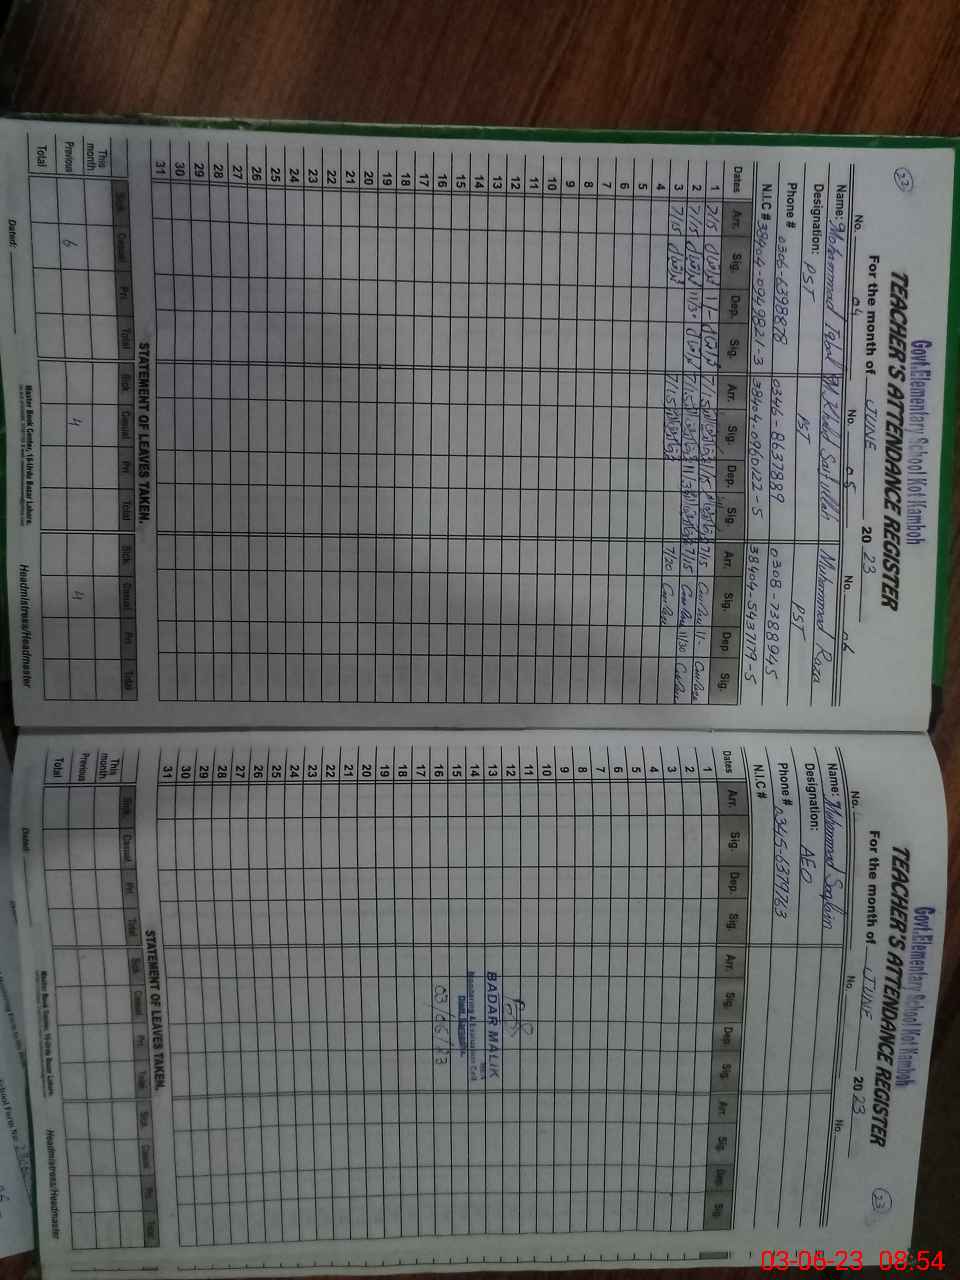 22
Govt.Elementary School Kot Kamboh
TEACHER'S ATTENDANCE REGISTER
For the month of JUNE 2023
No. 04 No. 05 No. 06
Name: Mohammad Iqbal M. Khalid Saifullah Muhammad Raza
Designation: PST PST PST
Phone # 0306-6398878 0346-8637889 0308-7388945
N.I.C # 38404-0949821-3 38404-0960122-5 38404-5437179-5
Dates Arr. Sig. Dep. Sig. Arr. Sig. Dep. Sig. Arr. Sig. Dep Sig.
1 7/15 11/- 7/15 11/15 7/15 11/-
2 7/15 11/30 7/15 11/30 7/15 11/30
3 7/15 7/15 7/20
4
5
6
7
8
9
10
11
12
13
14
15
16
17
18
19
20
21
22
23
24
25
26
27
28
29
30
31
STATEMENT OF LEAVES TAKEN.
Sick. Casual Pri. Total Sick. Casual Pri Total Sick. Casual Pri Total
This month
Previous 6 4 4
Total
Dated:
Master Book Center, 16-Urdu Bazar Lahore.
Headmistress/Headmaster
23
Govt.Elementary School Kot Kamboh
TEACHER'S ATTENDANCE REGISTER
For the month of JUNE 2023
No. No. No.
Name: Muhammad Saqlain
Designation: AEO
Phone # 0345-6379763
N.I.C #
Dates Arr. Sig. Dep. Sig. Arr. Sig. Dep. Sig. Arr Sig. Dep Sig.
1
2
3
4
5
6
7
8
9
10
11
12
13
14
15
16
17
18
19
20
21
22
23
24
25
26
27
28
29
30
31
BADAR MALIK
Monitoring & Evaluation Cell
03/06/23
STATEMENT OF LEAVES TAKEN.
Sick. Casual Pri. Total Sick. Casual Pri. Total Sick. Casual Pri. Total
This month
Previous
Total
Dated:
Master Book Center, 16-Urdu Bazar Lahore.
Headmistress/Headmaster
03-06-23 08:54